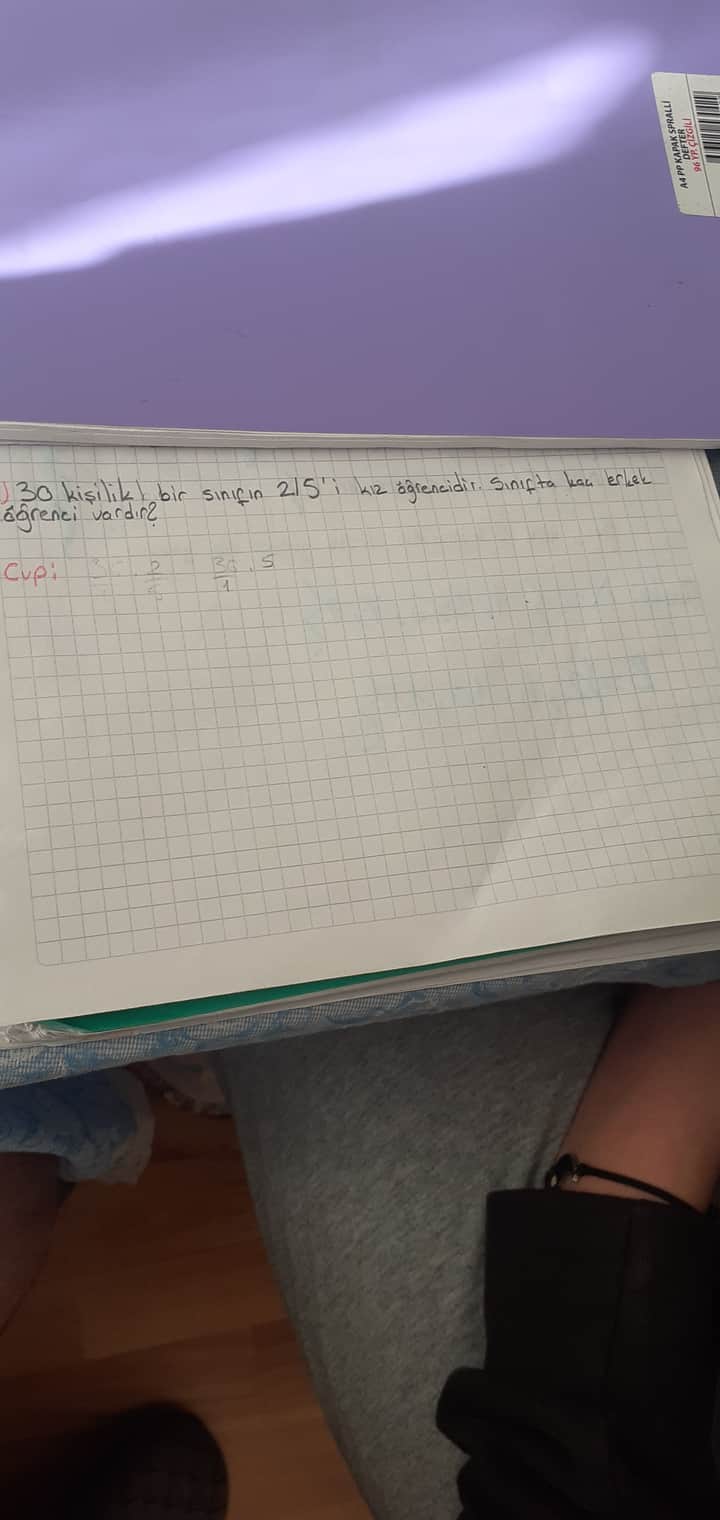 A4 PP KAPAK SPRALLİ
DEFTER
96 YP. ÇİZGİLİ
) 30 kişilik bir sınıfın 2/5'i kız öğrencidir. Sınıfta kaç erkek
öğrenci vardır?
Cvp: 30/1 . 5